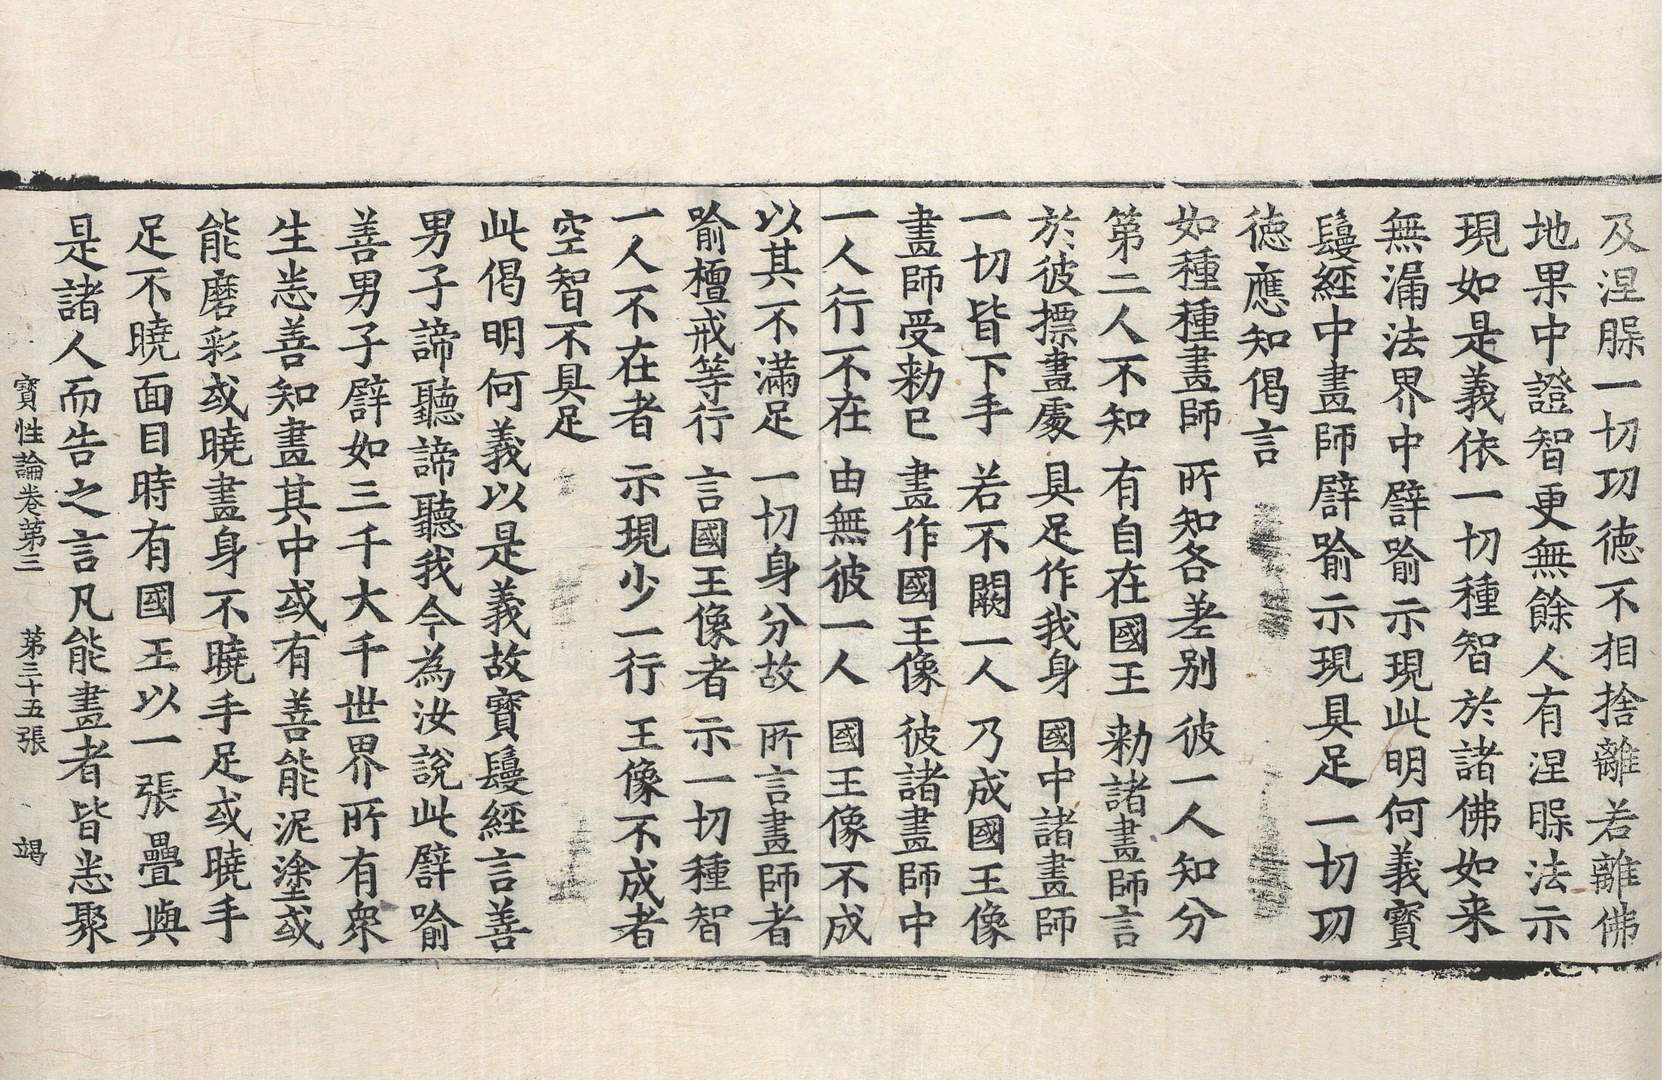 及涅脲一切功徳不相捨離若離佛
地果中證智更無餘人有涅脲法示
現如是義依一切種智於諸佛如来
無漏法界中譬喻示現此明何義寳
鬘經中畫師譬喻示現具足一切功
徳應知偈言
如種種畫師 所知各差别 彼一人知分
第二人不知 有自在國王 勑諸畫師言
於彼摽畫處 具足作我身 國中諸畫師
一切皆下手 若不闕一人 乃成國王像
畫師受勑已 畫作國王像 彼諸畫師中
一人行不在 由無彼一人 國王像不成
以其不滿足 一切身分故 所言畫師者
喻檀戒等行 言國王像者 示一切種智
一人不在者 示現少一行 王像不成者
空智不具足
此偈明何義以是義故寳鬘經言善
男子諦聽諦聽我今為汝說此譬喻
善男子譬如三千大千世界所有衆
生悉善知畫其中或有善能泥塗或
能磨彩或曉畫身不曉手足或曉手
足不曉面目時有國王以一張疊與
是諸人而告之言凡能畫者皆悉聚
寳性論卷第三 第三十五張 竭